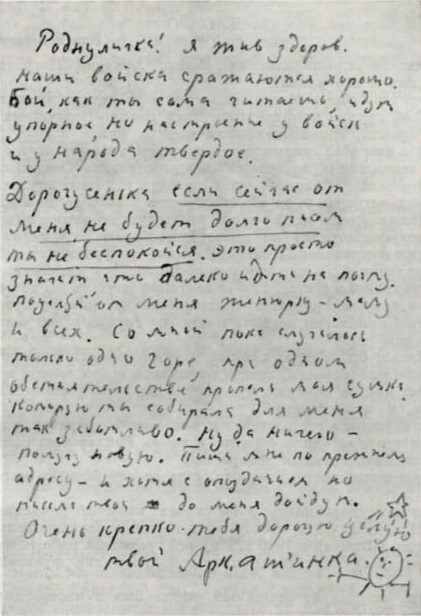 Роднуличка! я жив здоров.
наши войска сражаются хорошо.
Бои, как ты сама читаешь, идут
упорное но настроение у войск
и у народа твердое.
Дорогусенька если сейчас от
меня не будет долго писем
ты не беспокойся. Это просто
значит что далеко идти на почту.
Поцелуй от меня Женюрку-милу
и всех. Со мной пока случилось
только одно горе, при одном
обстоятельстве пропала моя сумка
которую ты собирала для меня
так заботливо. Ну да ничего -
получу новую. Пиши мне по прежнему
адресу - и хотя с опозданием но
письма твои до меня дойдут.
Очень крепко тебя дорогую целую
твой Аркашинка.